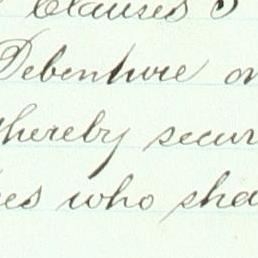 Clauses 5
Debenture or
thereby secur
ees who sha